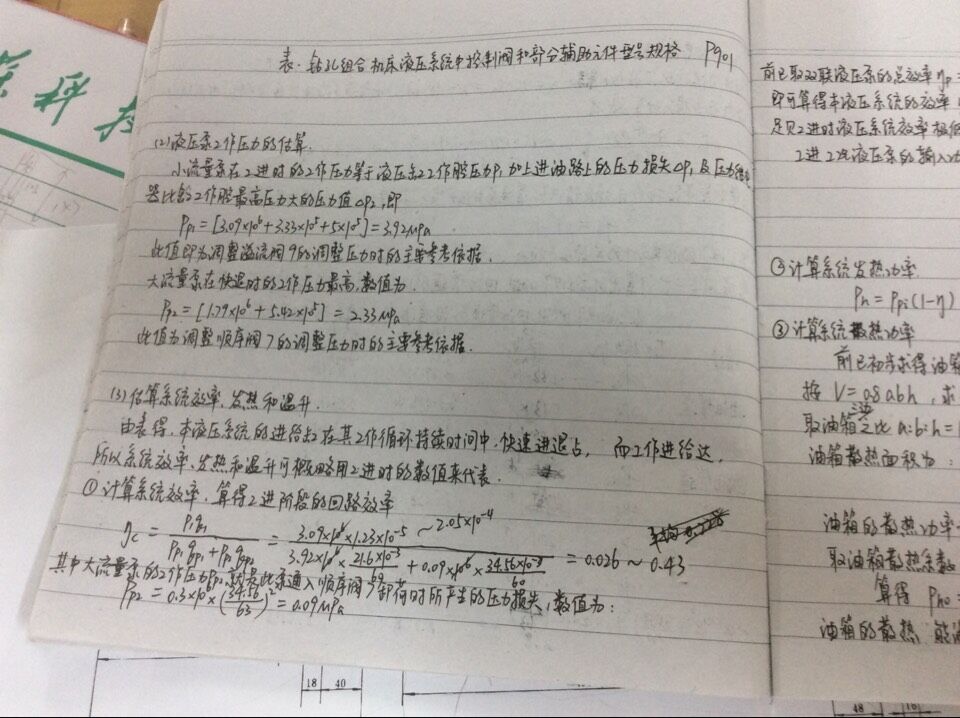 表.钻孔组合机床液压系统中控制阀和部分辅助元件型号规格 P901
(2)液压泵工作压力的估算.
小流量泵在工进时的工作压力等于液压缸工作腔压力P1加上进油路上的压力损失ΔP1及压力继电
器比缸工作腔最高压力大的压力值ΔP2,即
Pp1=[3.09×10^6+3.33×10^5+5×10^5]=3.92MPa
此值即为调整溢流阀9的调整压力时的主要参考依据.
大流量泵在快退时的工作压力最高,数值为.
Pp2=[1.79×10^6+5.42×10^5]=2.33MPa
此值为调整顺序阀7的调整压力时的主要参考依据.
(3)估算系统效率、发热和温升.
由表得,本液压系统的进给缸在其工作循环持续时间中,快速进退占, 而工作进给达,
所以系统效率、发热和温升可概略用工进时的数值来代表.
①计算系统效率.算得工进阶段的回路效率
ηc=P1q1/(Pp1qp1+Pp2qp2)=(3.09×10^6×1.23×10^-5~2.05×10^-4)/(3.92×10^6×21.6×10^-3/60+0.09×10^6×34.56×10^-3/60)=0.026~0.43
其中大流量泵的工作压力Pp2就是此泵通入顺序阀7卸荷时所产生的压力损失,数值为:
Pp2=0.3×10^6×(34.56/63)^2=0.09MPa
前已取双联液压泵的总效率ηp=
即可算得本液压系统的效率
足见工进时液压系统效率极低
工进工况液压泵的输入功
②计算系统发热功率.
Ph=Ppi(1-η)
③计算系统散热功率
前已初步求得油箱
按V=0.8abh,求
取油箱之比a:b:h=1
油箱散热面积为:
油箱的散热功率
取油箱散热系数
算得 Pho=
油箱的散热
18
40
48
16
科